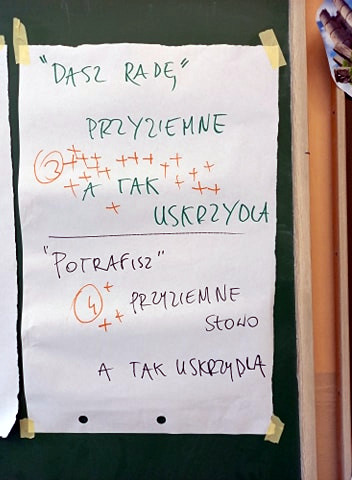 "DASZ RADĘ"
PRZYZIEMNE
2
A TAK
USKRZYDLA
"POTRAFISZ"
4 PRZYZIEMNE
SŁOWO
A TAK USKRZYDLA